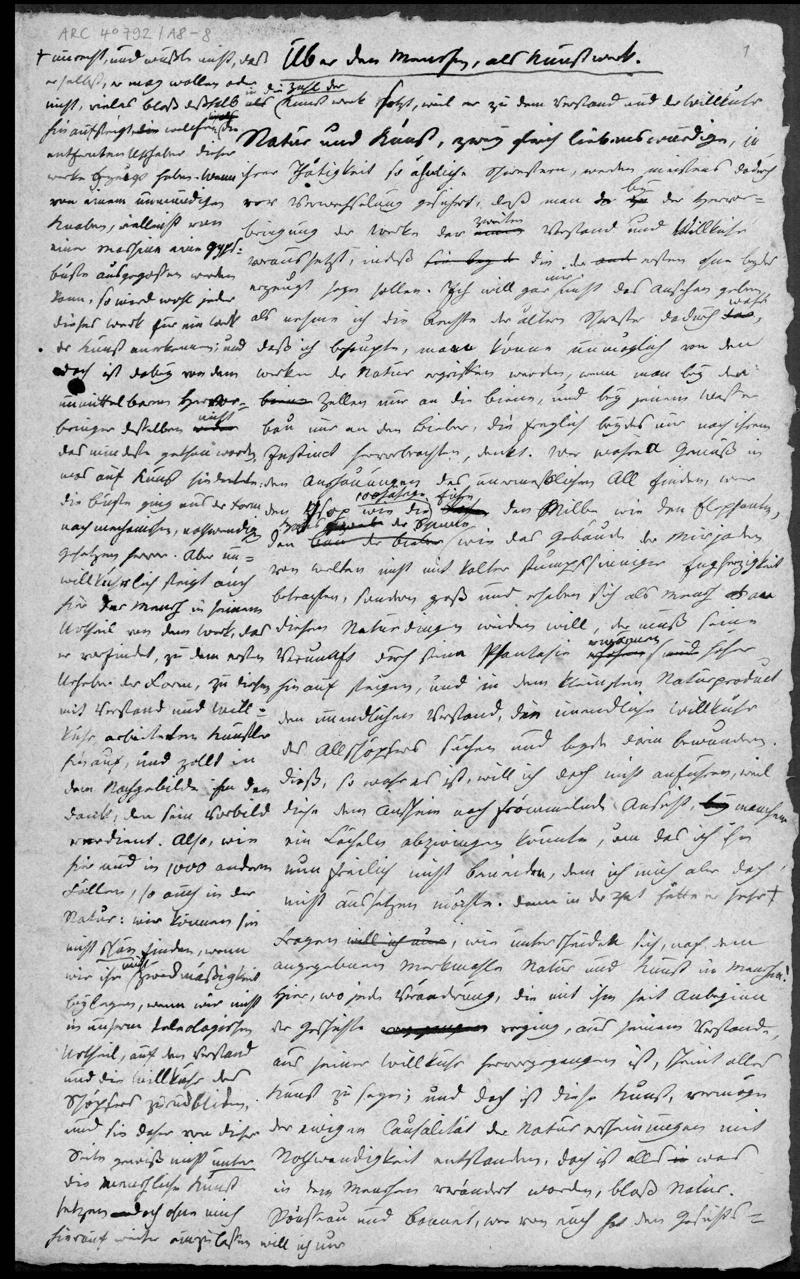 ARC 4° 792/A8-8
1
Über den Menschen, als Kunstwerk.
Natur und Kunst, zwey gleich liebenswürdige, in
ihrer Thätigkeit so ähnliche Schwestern, werden meistens dadurch
vor Verwechselung geschützt, daß man bey der Hervor-
bringung der Werke der zweiten Verstand und Willkühr
voraussetzt, indeß die, der ersten ohne beydes
erzeugt seyn sollen. Ich will gar nicht das Ansehen geben,
als nehme ich die Rechte der ältern Schwester dadurch wahr,
daß ich behaupte, man könne unmöglich von den
Werken der Natur ergriffen werden, wenn man bey den
Zellen nur an die Biene, und bey jenem Wasser-
bau nur an den Bieber, die freylich beydes nur nach ihrem
Instinct hervorbrachten, denkt. Wer wahren Genuß in
den Anschauungen des unermeßlichen All finden, wer
den Ysop wie die den Milbe wie den Elephanten,
den wie das Gebäude der Myriaden
von Welten nicht mit kalter stumpfsinniger Engherzigkeit
betrachten, sondern groß und erhaben sich als Mensch an
diesen Naturdingen weiden will, der muß seine
Vernunft durch seine Phantasie höher
hinauf steigern, und in dem kleinsten Naturproduct
den unendlichen Verstand, die unendliche Willkühr
des Allschöpfers suchen und beyde darin bewundern.
Dieß, so wahr es ist, will ich doch nicht anführen, weil
diese dem Anschein nach frömmelnde Ansicht, manchem
ein Lächeln abzwingen könnte, um das ich ihn
nun freilich nicht beneiden, dem ich mich aber doch
nicht aussetzen möchte. Denn in der That hätte er sehr †
Fragen, wie unterscheidet sich, nach dem
angegebenen Merkmahle Natur und Kunst im Menschen?
Hier, wo jede Veränderung, die mit ihm seit Anbeginn
der Geschichte vorging, aus seinem Verstande,
aus seiner Willkühr hervorgegangen ist, scheint alles
Kunst zu seyn; und doch ist diese Kunst, vermöge
der ewigen Causalität der Naturerscheinungen mit
Nothwendigkeit entstanden, doch ist alles was
in dem Menschen verändert worden, bloß Natur.
Rousseau und Bonnet, wer von euch hat den Gesichts-
† unrecht, und wüßte nicht, daß
er selbst, er mag wollen oder
nicht, vieles bloß deßhalb als in die Zahl der Kunstwerk setzt, weil er zu dem Verstand und der Willkühr
hinaufsteigt, welche die
entfernten Urheber dieser
Werke gezeigt haben. Wenn
von einem unwissenden
Knaben, vielleicht von
einer Maschine eine Gyps-
büste ausgegossen werden
kann, so wird wohl jeder
dieses Werk für ein Werk
der Kunst anerkennen; und
doch ist dabey von dem
unmittelbaren Hervor-
bringer desselben nicht
das mindeste gethan worden
was auf Kunst hindeutete:
die Büste ging aus der Form
nach mechanischen, nothwendigen
Gesetzen hervor. Aber un-
willkührlich steigt auch
hier der Mensch in seinem
Urtheil von dem Werk, das
er vorfindet, zu dem ersten
Urheber der Form, zu diesem
mit Verstand und Will-
kühr arbeitenden Künstler
hinauf, und zollt in
dem Nachgebilde ihm den
Dank, den sein Vorbild
verdient. Also, wie
hier und in 1000 andern
Fällen, so auch in der
Natur: wir können sie
nicht schön finden, wenn
wir ihr nicht Zweckmäßigkeit
beylegen, wenn wir nicht
in unserm teleologischen
Urtheil, auf den Verstand
und die Willkühr des
Schöpfers zurückblicken,
und sie daher von dieser
Seite gewiß nicht unter
die menschliche Kunst
setzen. Doch ohne mich
hierauf weiter einzulassen will ich nur